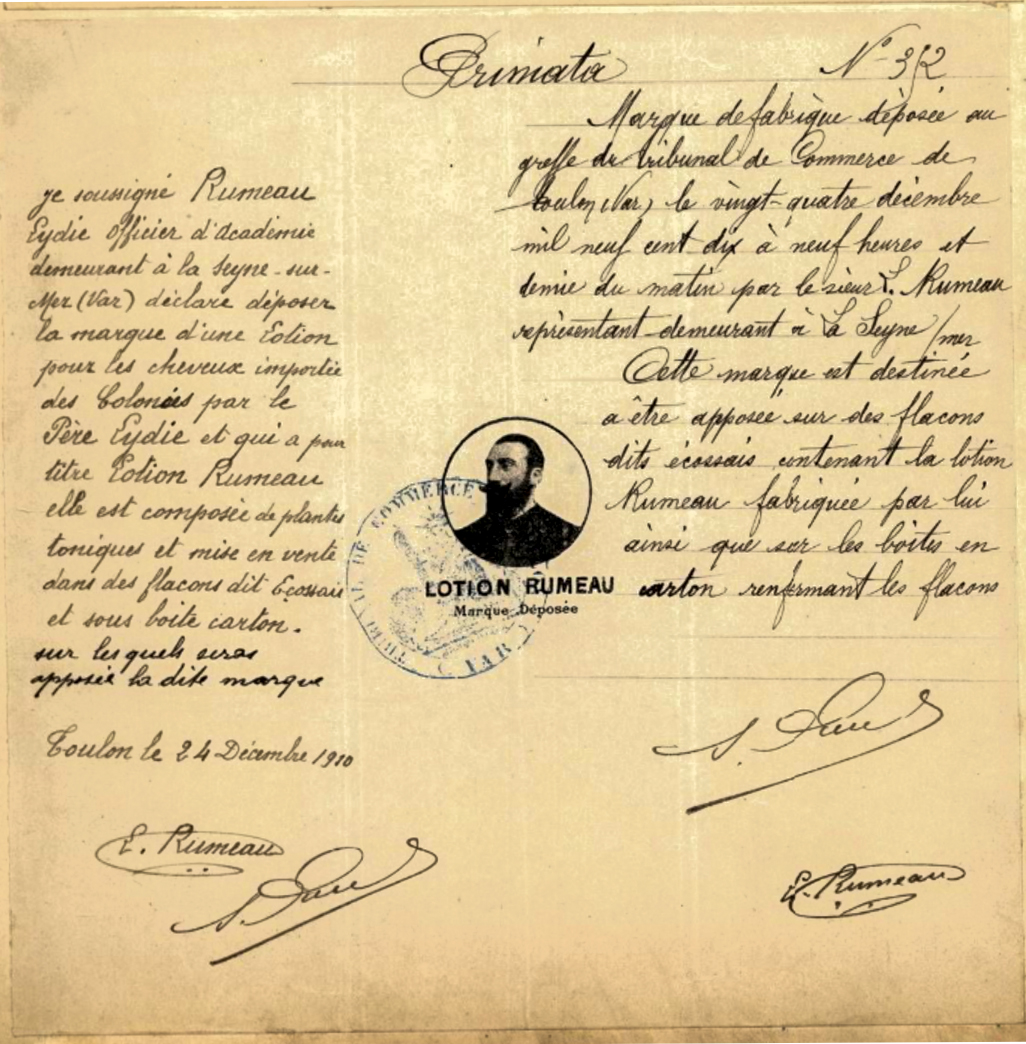 Primata N° 352
je soussigné Rumeau
Eydie Officier d'Académie
demeurant à la Seyne-sur-
Mer (Var) déclare déposer
la marque d'une Lotion
pour les cheveux importée
des Colonies par le
Père Eydie et qui a pour
titre Lotion Rumeau
elle est composée de plantes
toniques et mise en vente
dans des flacons dit Ecossais
et sous boite carton.
sur lesquels seras
apposée la dite marque
Toulon le 24 Décembre 1910
E. Rumeau
Marque de fabrique déposée au
greffe du tribunal de Commerce de
Toulon (Var) le vingt-quatre décembre
mil neuf cent dix à neuf heures et
demie du matin par le sieur E. Rumeau
représentant demeurant à La Seyne /mer
Cette marque est destinée
a être apposée sur des flacons
dits écossais contenant la lotion
Rumeau fabriquée par lui
ainsi que sur les boites en
carton renfermant les flacons
E. Rumeau
LOTION RUMEAU
Marque Déposée
TRIBUNAL DE COMMERCE